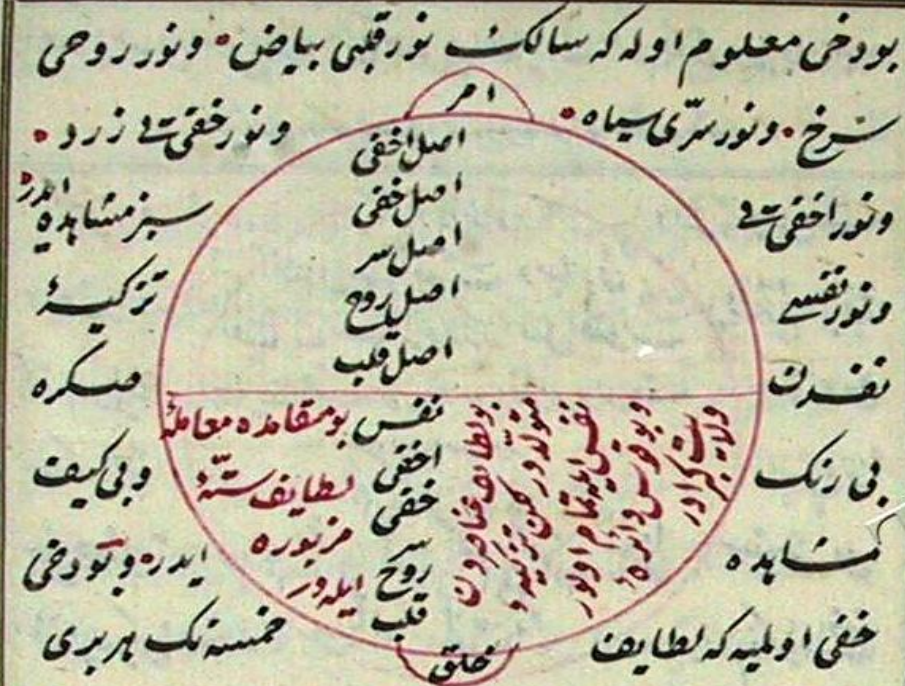 بو دخی معلوم اوله که سالک نور قلبی بیاض • ونور روحی
سرخ • ونور سرّی سیاه • ونور خفی یی زرد •
ونور اخفی یی سبز مشاهده ایدر
ونور نفسی تزکیهٔ
نفسدن صکره
بی رنک وبی کیف
مشاهده ایدر • وبو دخی
خفی اولمیه که لطایف خمسه نک هر بری
امر
اصل اخفی
اصل خفی
اصل سر
اصل روح
اصل قلب
نفس
اخفی
خفی
سر
روح
قلب
بو مقامده معامله
لطایف ستّهٔ
مزبوره
ایله در
بو لطایف عناصردن
متولّد در لکن تزکیه
نفس ایله تمام اولور
وبو قوس دائرهٔ
ولایت کبرادر
خلق